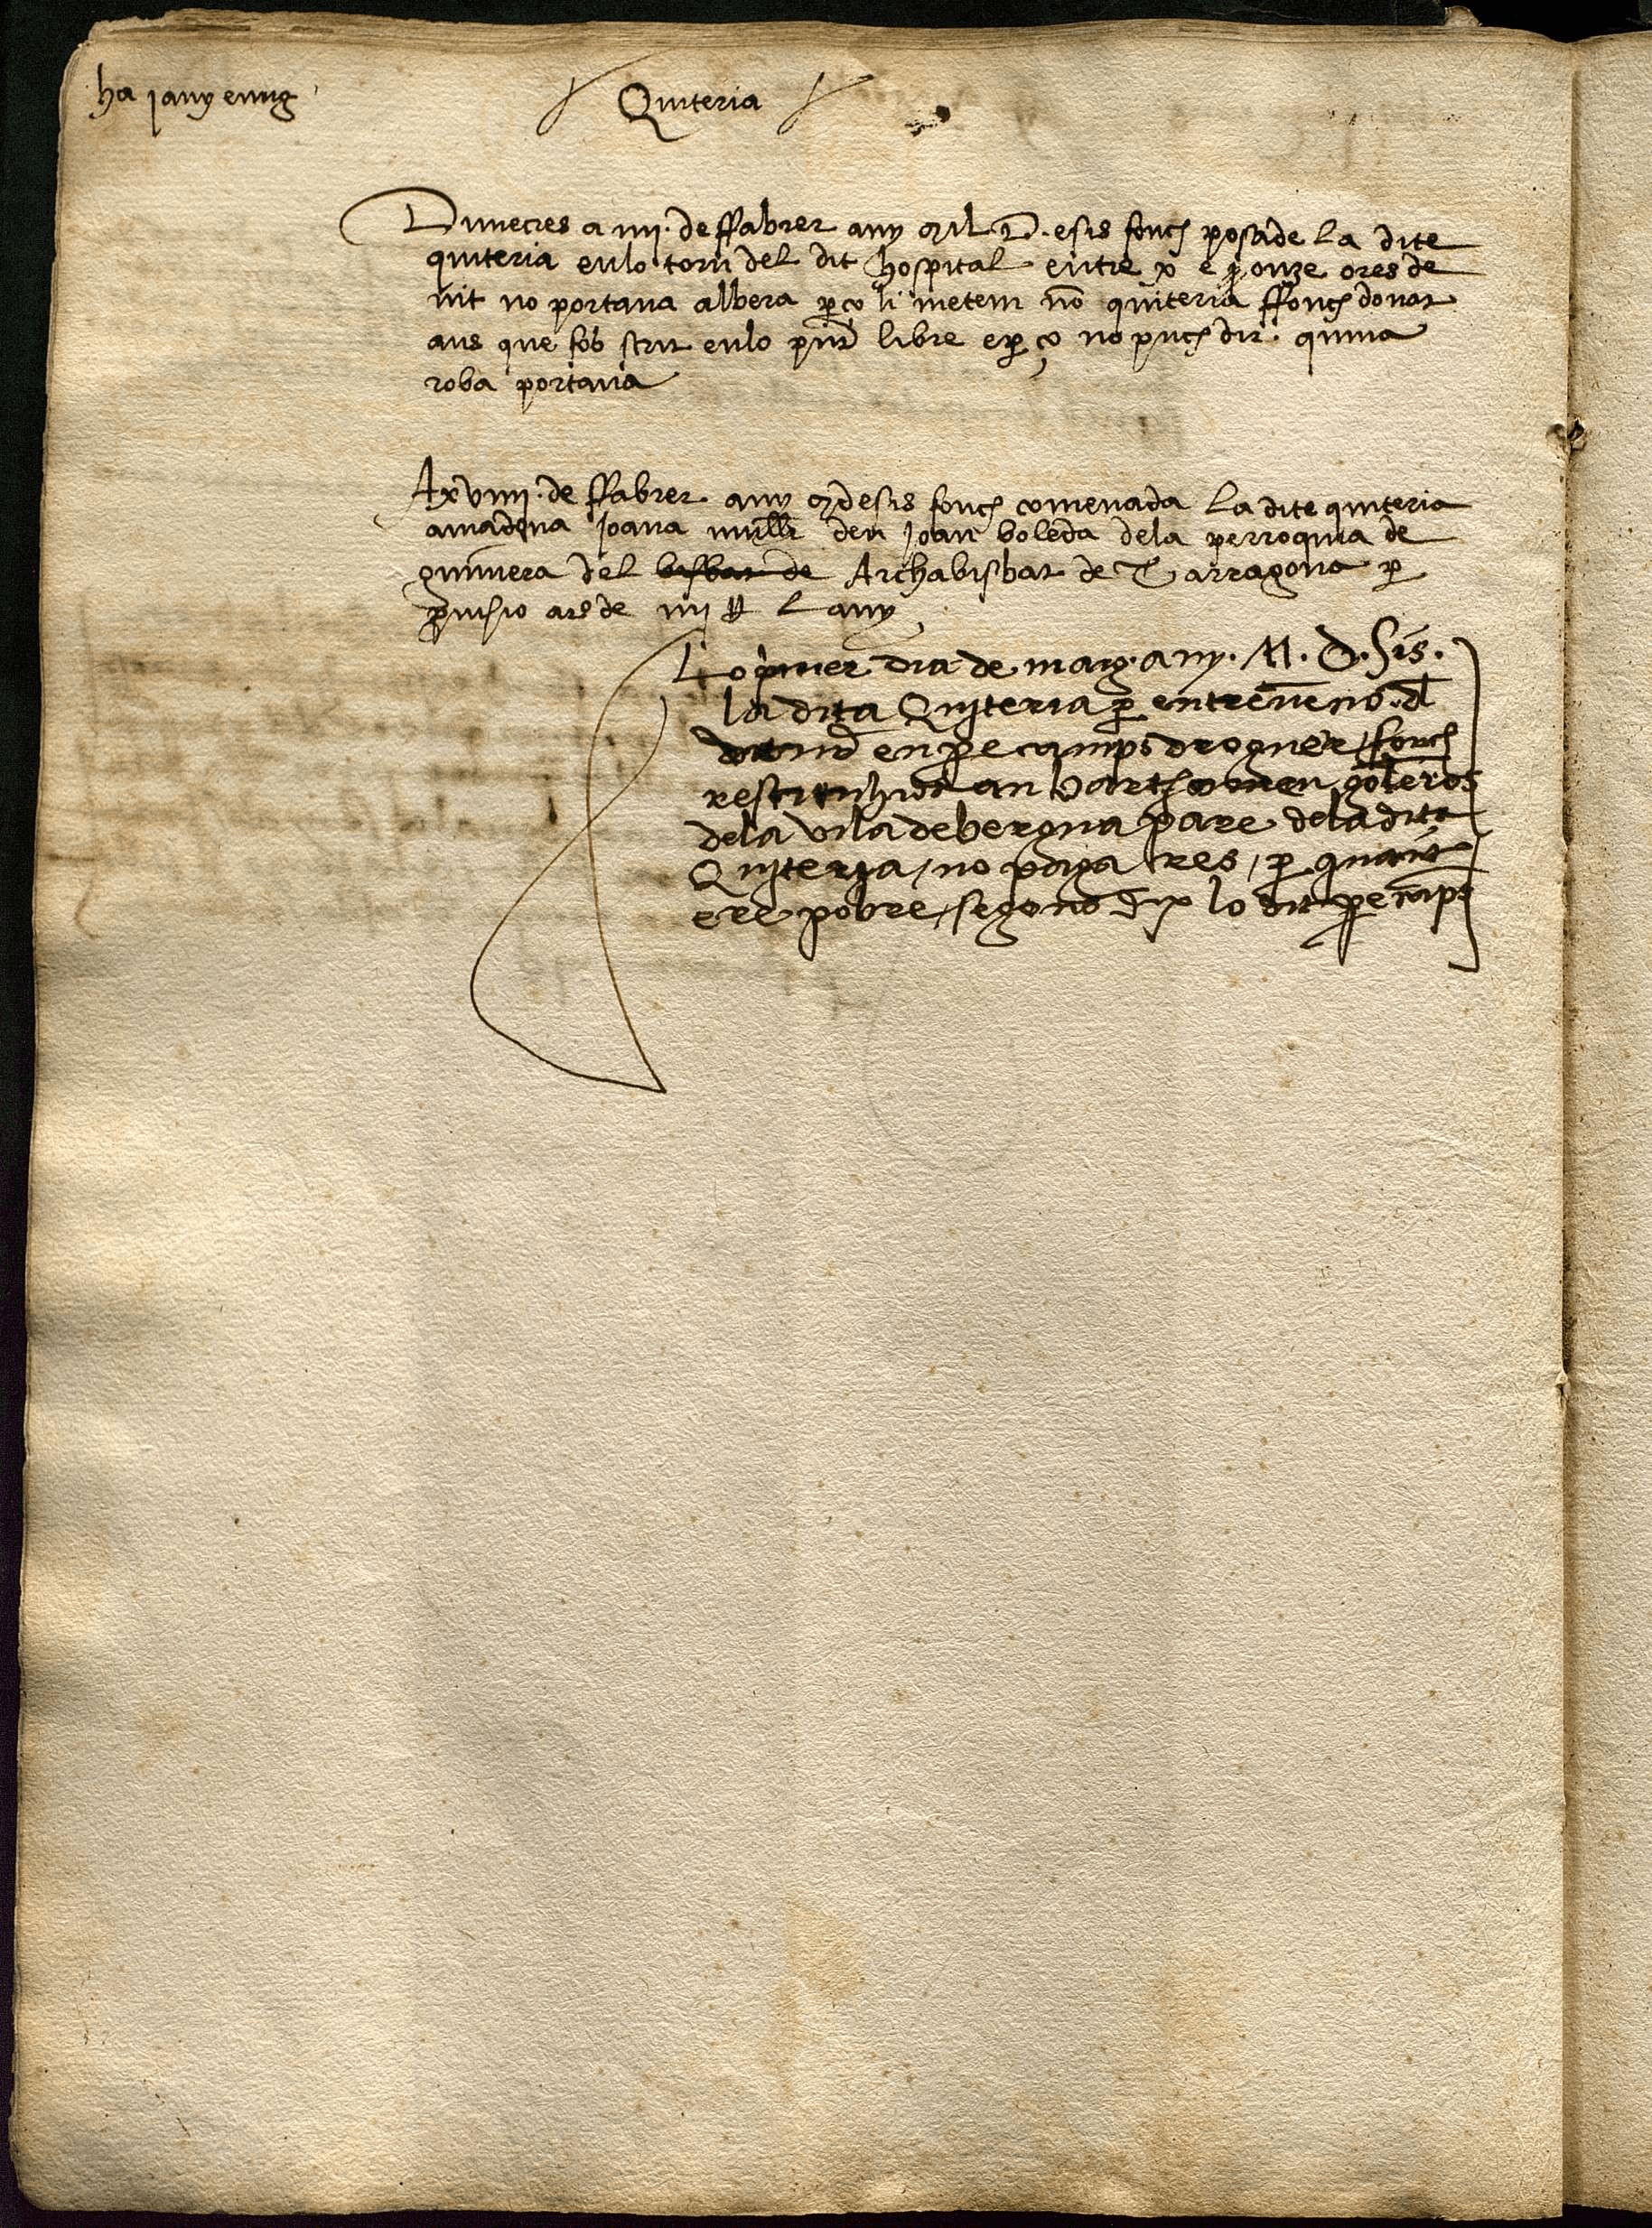 ha j any e mig
Quiteria
Dimecres a iiii. de ffabrer any Mil D. e sis fonch posade la dite
quiteria en lo torn del dit hospital entre x e onze ores de
nit no portava albera per ço li metem nõ quiteria ffonch donat
ans que fos scrit en lo pñt libre e per ço no puch dir. quina
roba portava
A xviiii. de ffabrer any MD e sis fonch comenada la dite quiteria
a madona Joana mullr den Joan boleda dela perroquia de
guimera del bisbat de Archabisbat de Tarragona per
provisio ars de iiii ℔ l any
Lo primer dia de maig. any. M. D. Sis.
la dita Quiteria per entreveno. dl
en pere camps droguer, fonch
restituhida an Barthomeu
dela vila de berga pare dela dita
Quiteria, no paga res, per quant
ere pobre, segons dix lo dit pere camps